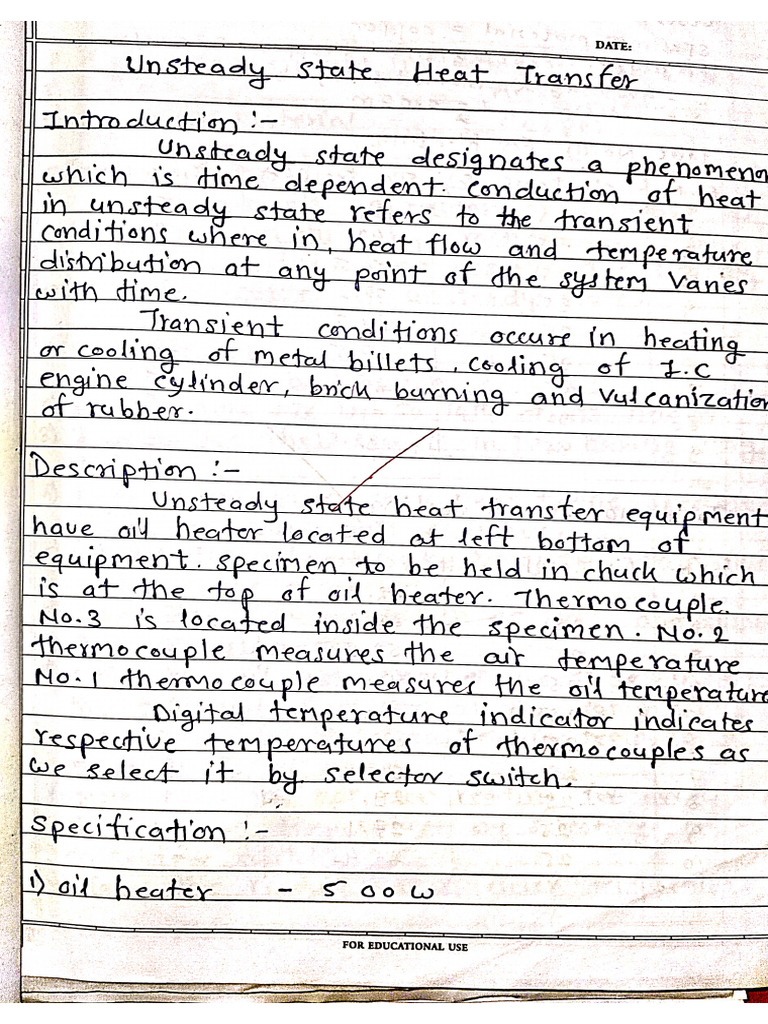 DATE:
Unsteady State Heat Transfer
Introduction :-
Unsteady state designates a phenomenon
which is time dependent. conduction of heat
in unsteady state refers to the transient
conditions where in, heat flow and temperature
distribution at any point of the system varies
with time.
Transient conditions occure in heating
or cooling of metal billets, cooling of I.C
engine cylinder, brick burning and vulcanization
of rubber.
Description :-
Unsteady state heat transfer equipment
have oil heater located at left bottom of
equipment. specimen to be held in chuck which
is at the top of oil heater. Thermocouple.
No.3 is located inside the specimen. No.2
thermocouple measures the air temperature
No.1 thermocouple measures the oil temperature
Digital temperature indicator indicates
respective temperatures of thermocouples as
we select it by selector switch.
Specification :-
1) oil heater - 500W
FOR EDUCATIONAL USE